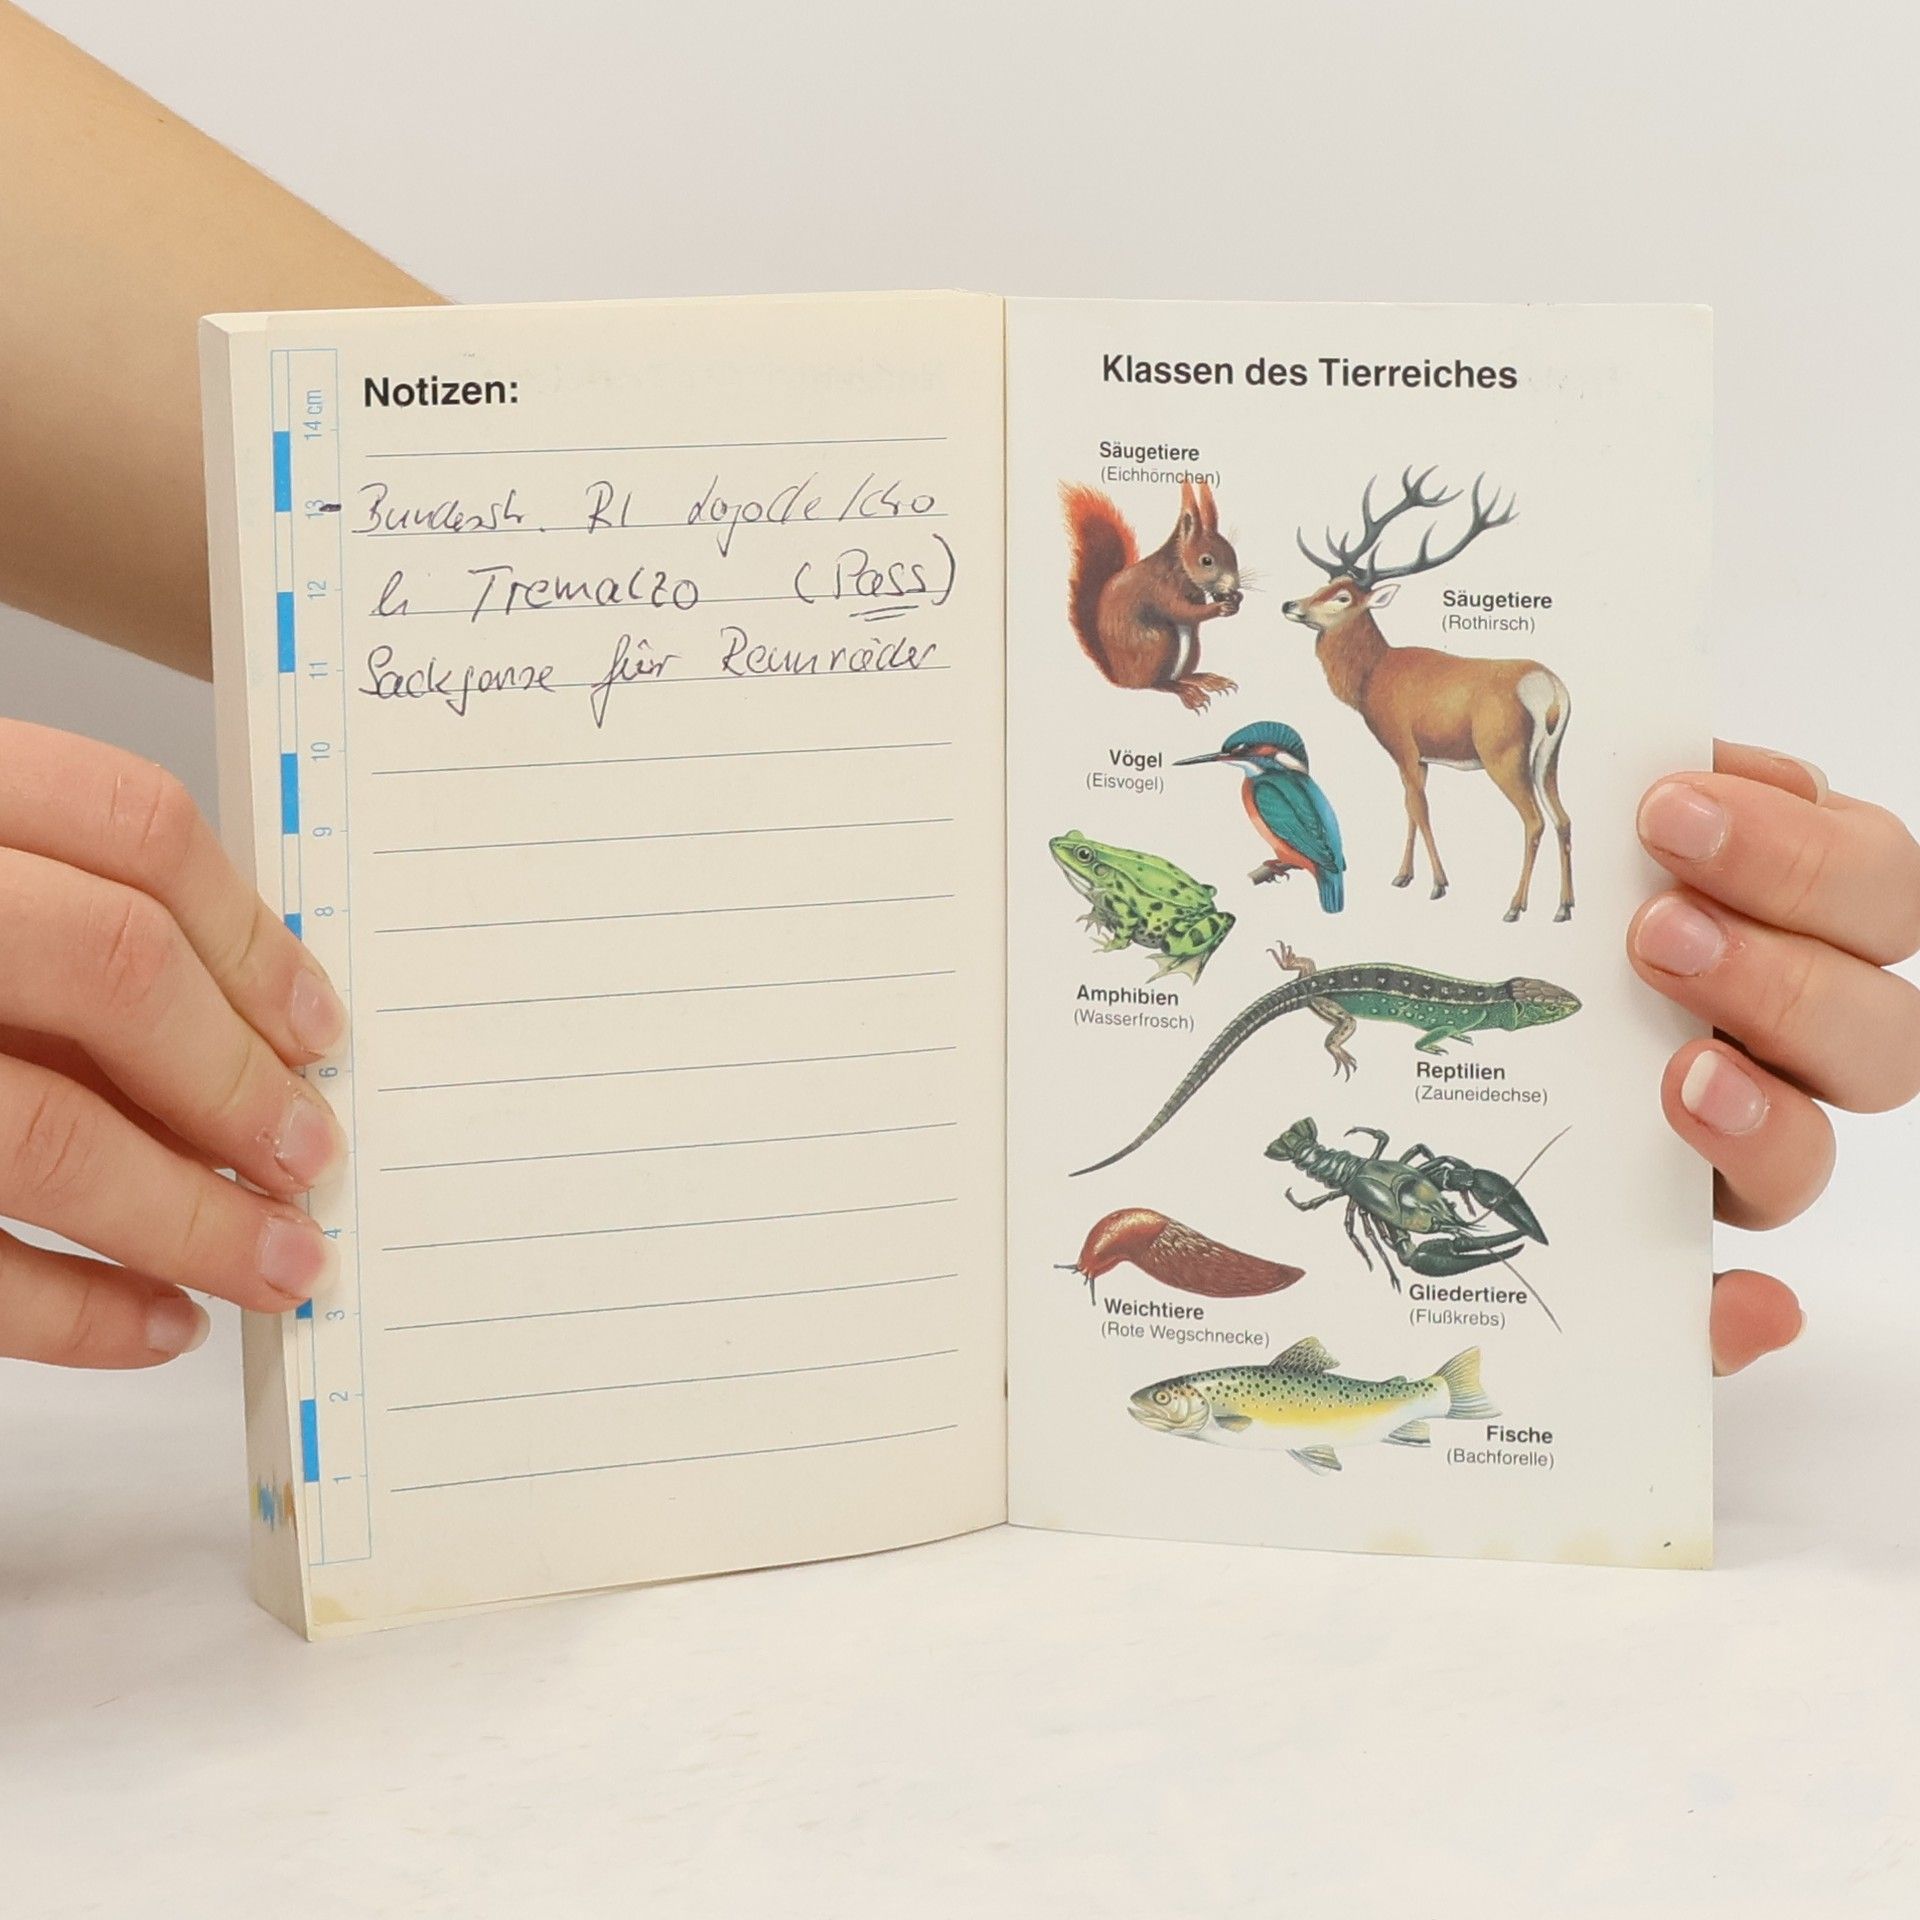 Notizen:
Bundesstr. RI
li Tremalzo (Pass)
Sackgasse für Rennräder
14 cm
13
12
11
10
9
8
6
4
3
2
1
Klassen des Tierreiches
Säugetiere
(Eichhörnchen)
Säugetiere
(Rothirsch)
Vögel
(Eisvogel)
Amphibien
(Wasserfrosch)
Reptilien
(Zauneidechse)
Gliedertiere
(Flußkrebs)
Weichtiere
(Rote Wegschnecke)
Fische
(Bachforelle)